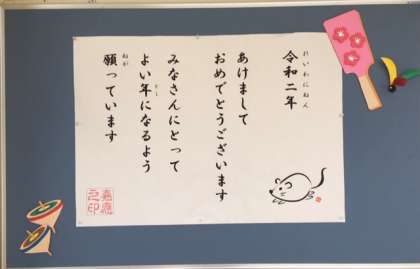 令和二年
れいわにねん
あけまして
おめでとうございます
みなさんにとって
よい年になるよう
とし
願っています
ねが